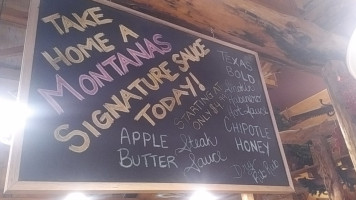 TAKE
HOME A
MONTANAS
SIGNATURE SAUCE
TODAY!
STARTING AT
ONLY $4
APPLE
BUTTER
Steak
Sauce
TEXAS
BOLD
Habanero
Hot Sauce
CHIPOTLE
HONEY
Dry
Rub